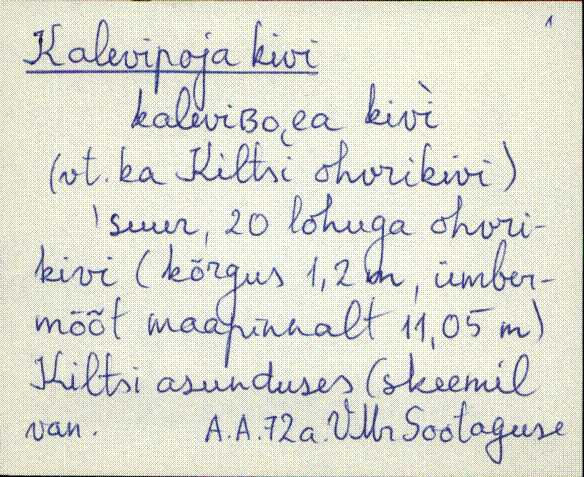 1
Kalevipoja kivi
kaleviʙo̜ea kivì
(vt. ka Kiltsi ohvrikivi)
'suur, 20 lohuga ohvri-
kivi (kõrgus 1,2 m, ümber-
mõõt maapinnalt 11,05 m)
Kiltsi asunduses (skeemil
van. A.A.72a. VMr Sootaguse